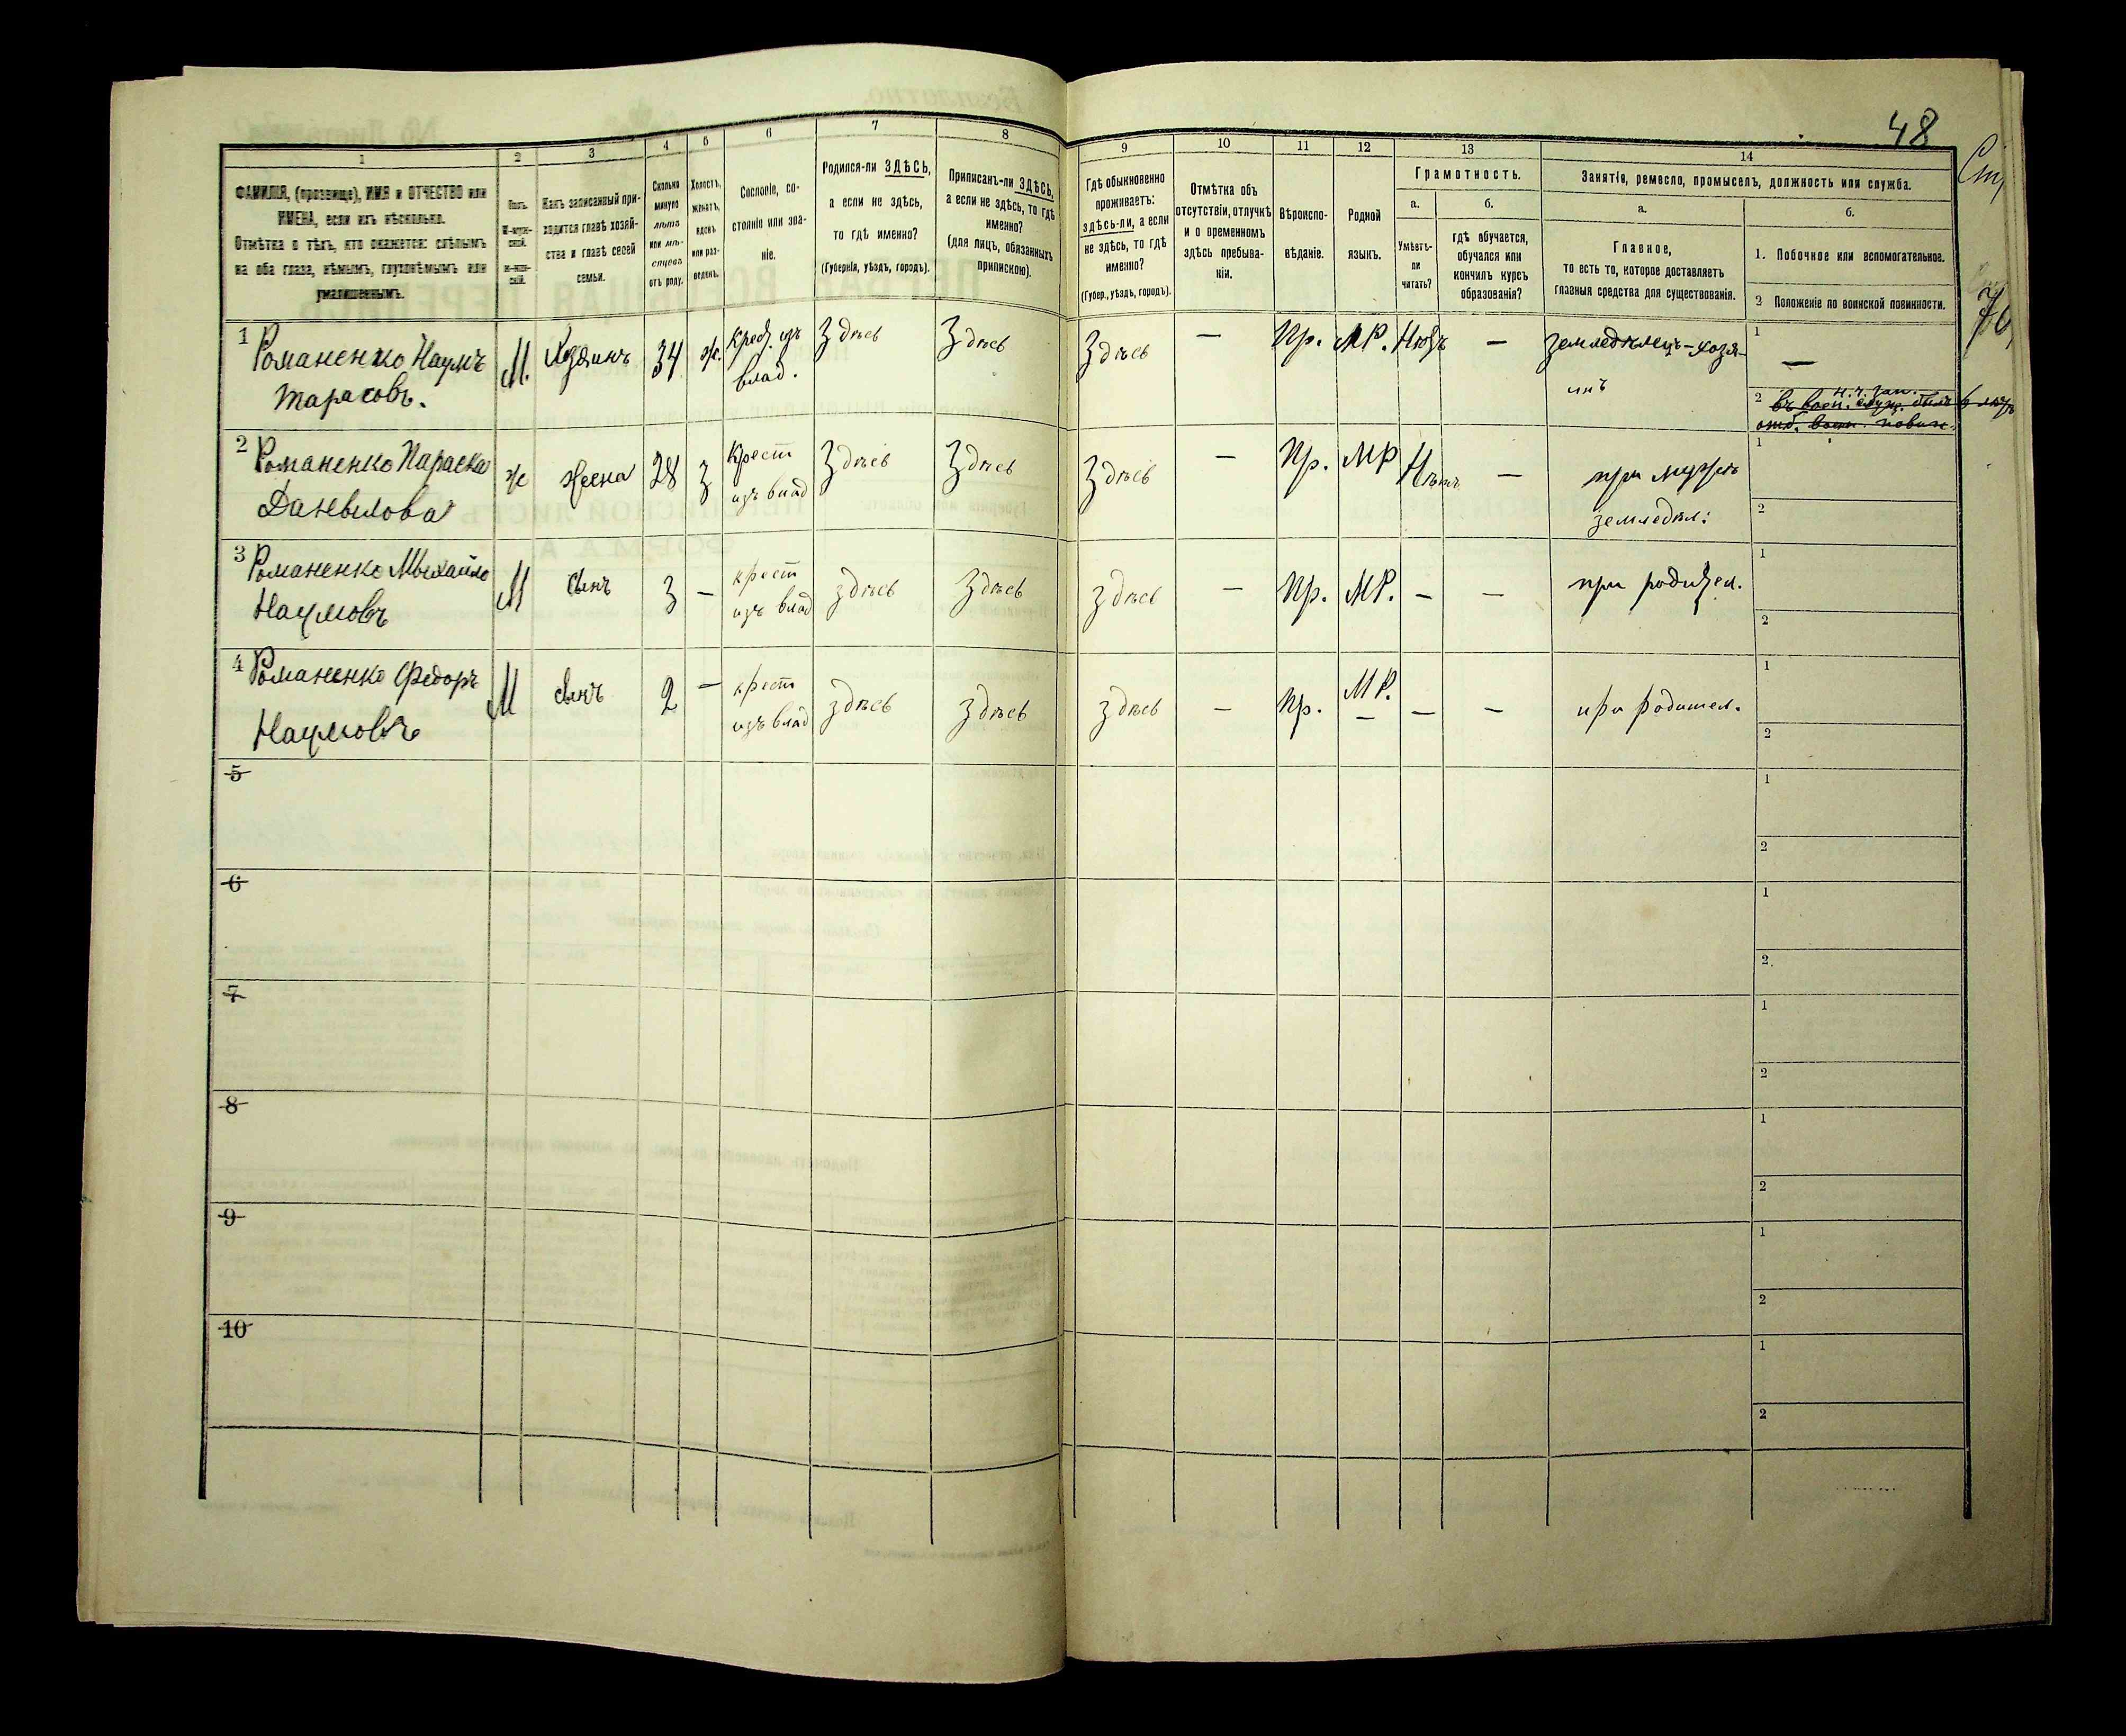 48
1
2
3
4
5
6
7
8
9
10
11
12
13
14
ФАМИЛІЯ, (прозвище), ИМЯ и ОТЧЕСТВО или
ИМЕНА, если ихъ нѣсколько.
Отмѣтка о тѣхъ, кто окажется: слѣпымъ
на оба глаза, нѣмымъ, глухонѣмымъ или
умалишеннымъ.
Полъ.
М-муж-
ской.
Ж-жен-
скій.
Какъ записанный при-
ходится главѣ хозяй-
ства и главѣ своей
семьи.
Сколько
минуло
лѣтъ
или мѣ-
сяцевъ
отъ роду.
Холостъ,
женатъ,
вдовъ
или раз-
веденъ.
Сословіе, со-
стояніе или зва-
ніе.
Родился-ли ЗДѢСЬ,
а если не здѣсь,
то гдѣ именно?
(Губернія, уѣздъ, городъ).
Приписанъ-ли ЗДѢСЬ,
а если не здѣсь, то гдѣ
именно?
(для лицъ, обязанныхъ
припискою).
Гдѣ обыкновенно
проживаетъ:
здѣсь-ли, а если
не здѣсь, то гдѣ
именно?
(Губер., уѣздъ, городъ).
Отмѣтка объ
отсутствіи, отлучкѣ
и о временномъ
здѣсь пребыва-
ніи.
Вѣроиспо-
вѣданіе.
Родной
языкъ.
Грамотность.
а.
Умѣетъ-
ли
читать?
б.
гдѣ обучается,
обучался или
кончилъ курсъ
образованія?
Занятіе, ремесло, промыселъ, должность или служба.
а.
Главное,
то есть то, которое доставляетъ
главныя средства для существованія.
б.
1. Побочное или вспомогательное.
2 Положеніе по воинской повинности.
1 Романенко Наумъ
Тарасовъ.
М.
Хозяинъ
34
ж.
Крест. изъ
влад.
Здѣсь
Здѣсь
Здѣсь
—
Пр.
МР.
Нѣтъ
—
земледѣлецъ-хозя-
инъ
1
—
2
н. ч. зап.
въ воен. служ. былъ 6 лѣтъ
отб. воен. повин.
2 Романенко Параска
Данвылова
ж
жена
28
З
Крест
изъ влад
Здѣсь
Здѣсь
Здѣсь
—
Пр.
МР
Нѣтъ
—
при мужѣ
земледѣл:
1
2
3 Романенко Мыхайло
Наумовъ
М
сынъ
3
—
крест
изъ влад
здѣсь
Здѣсь
здѣсь
—
Пр.
МР.
—
—
при родител.
1
2
4 Романенко Федоръ
Наумовъ
М
сынъ
2
—
крест
изъ влад
здѣсь
здѣсь
здѣсь
—
Пр.
МР.
—
—
—
при родител.
1
2
5
1
2
6
1
2
7
1
2
8
1
2
9
1
2
10
1
2